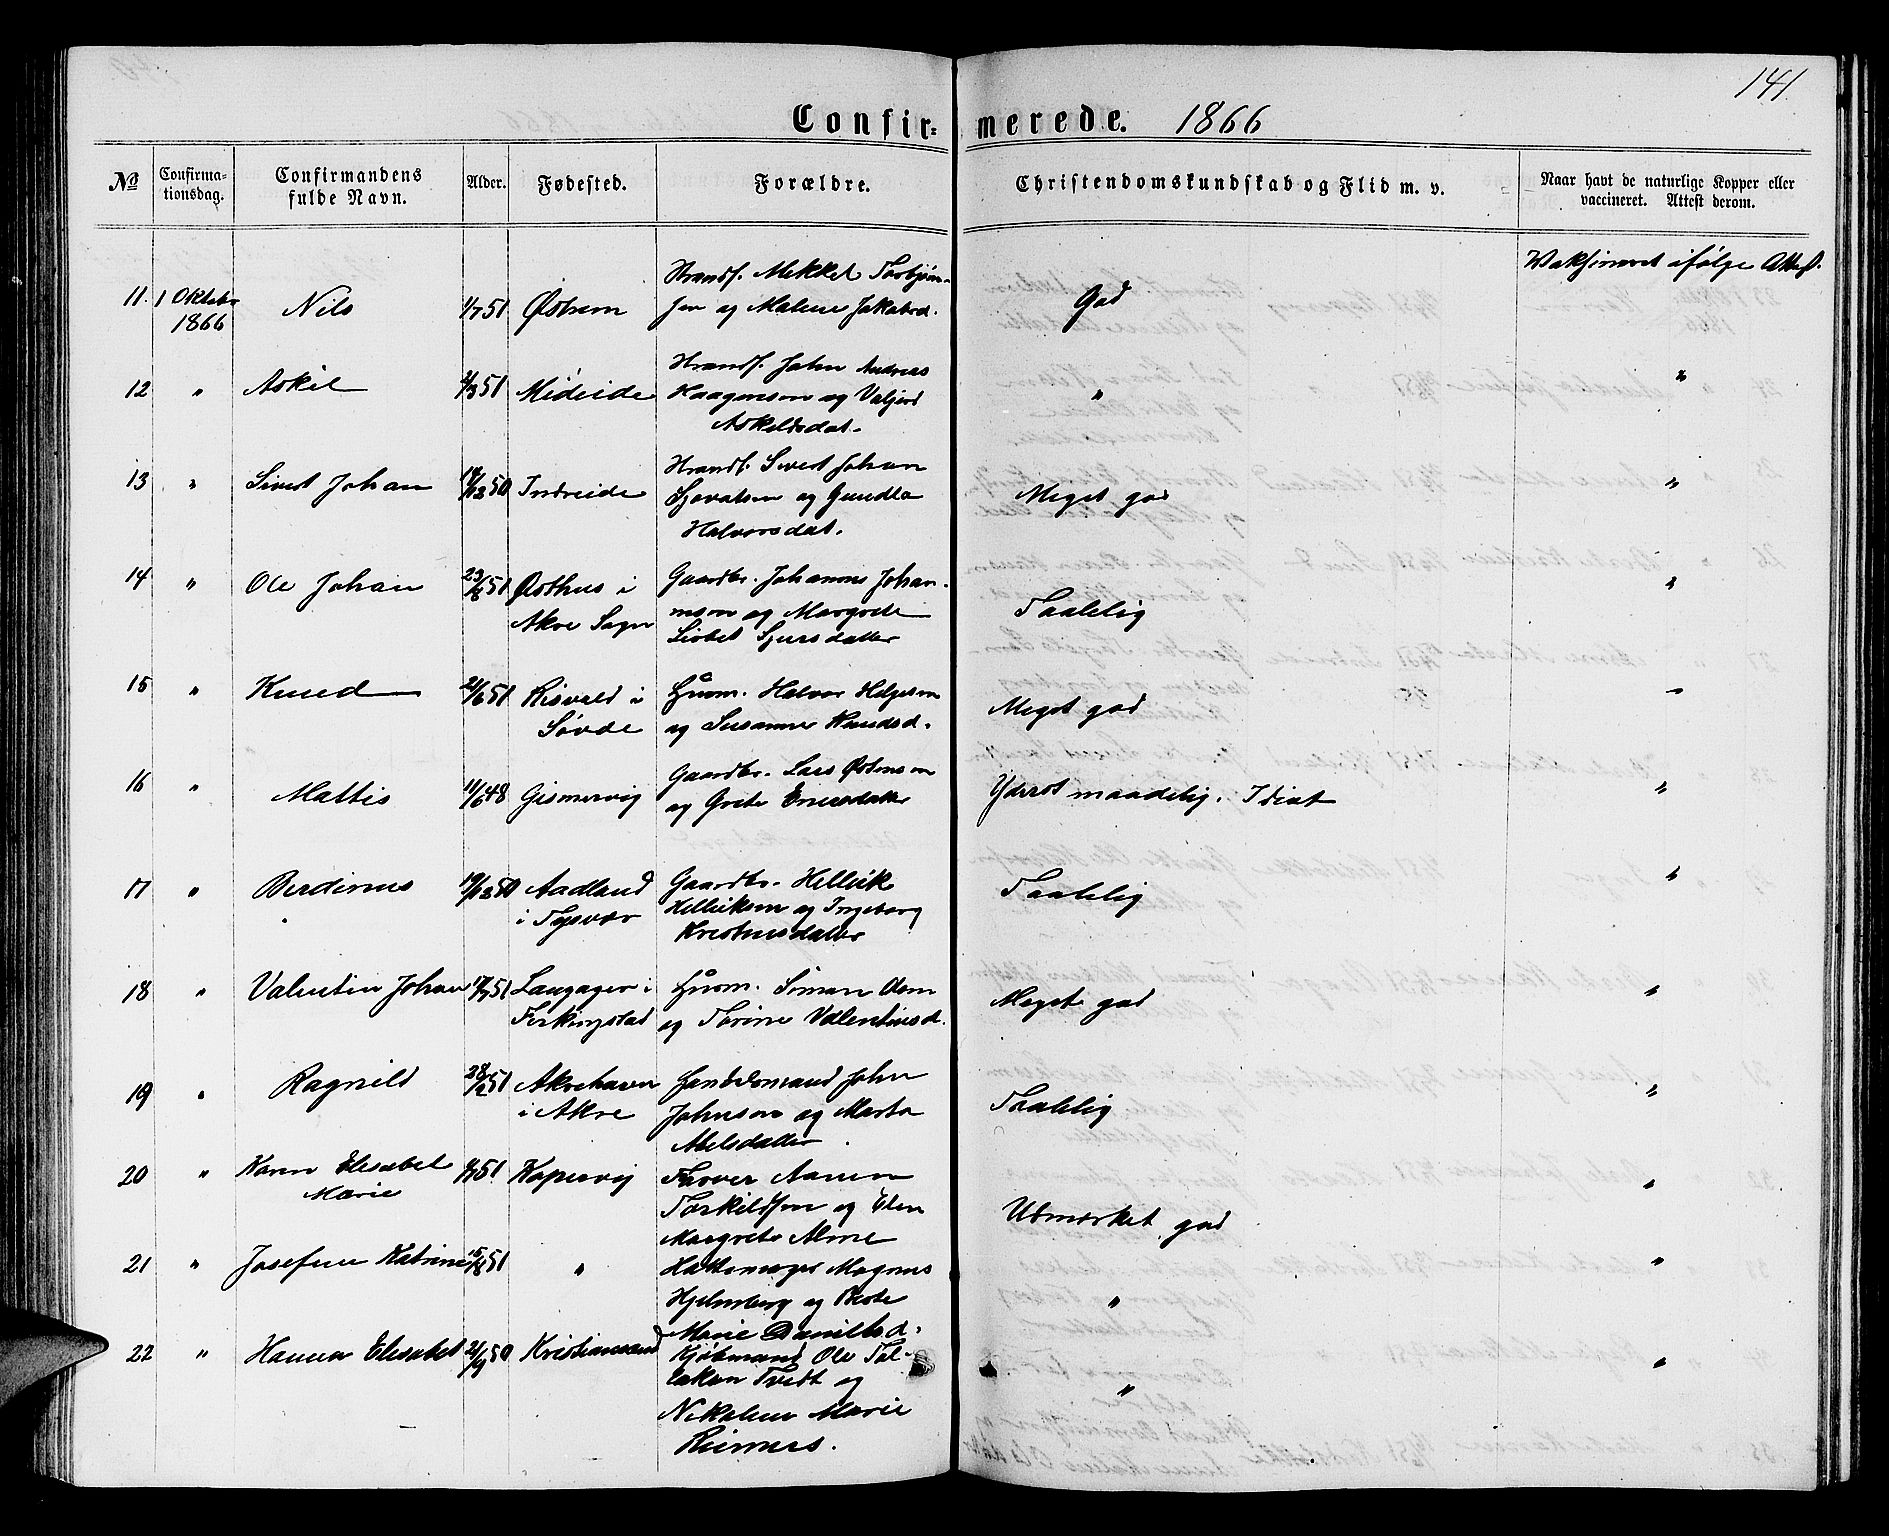 141.
Confir= merede. 1866
No Confirma-tionsdag. Confirmandens fulde Navn. Alder. Fødested. Forældre. Christendomskundskab og Flid m. v. Naar havt de naturlige Kopper eller vaccineret. Attest derom.
Vaksineret ifølge Attest.
11. 1 Oktober 1866 Nils 1/7 51 Østrem Strandf. Mekkel Torbjøn-
sen og Malene Jakobsd. God
12 " Askil 51 Mideide Strandf. John Andreas
Haagensen og Valjerd
Askildsdat. " "
13 " Sivert Johan 50 Indreide Strandf. Sivert Johan
Sjovatsen og Gundla
Halvorsdat. Meget god "
14 " Ole Johan 51 Østhus i
Akre Sogn Gaardbr. Johannes Johan-
nesen og Margrete
Lisbet Sjursdatter Taalelig "
15 " Knud 51 Risvold i
Søvde Husm. Halvor Helgesen
og Susanne Knudsd. Meget god "
16 " Mattis 11/6 48 Gismervig Gaardbr. Lars Østensen
og Grete Enersdatter Yderst maadelig. Idiot "
17 " Berdinus 19/12 50 Aadland
i Tysvær Gaardbr. Hellik
Helliksen og Ingeborg
Kristensdatter Taalelig "
18 " Valentin Johan 51 Langager i
Ferkingstad Husm. Simon Olsen
og Torine Valentinsd. Meget god "
19 " Ragnild 28/2 51 Akrehavn
i Akre Handelsmand John
Johnsen og Marta
Abelsdatter. Taalelig "
20 " Karen Elisabet
Marie 51 Kopervig Farver Aanen
Torkildsen og Elen
Margrete Alme Udmærket god "
21 " Josefine Katrine 51 " Hattemager Magnus
Hjelmberg og Berte
Marie Danielsd. " "
22 " Hanna Elisabet 50 Kristiansand Kjøbmand Ole Tol-
laksen Tvedt og
Nikoline Marie
Reimers. " "